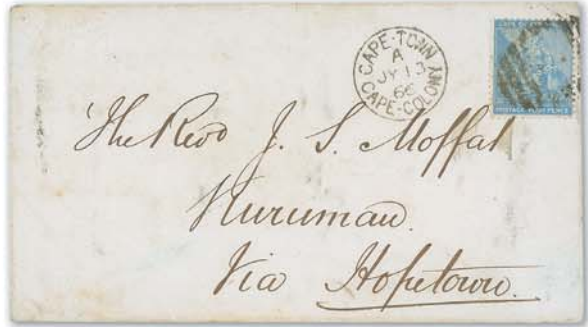 CAPE·TOWN
A
JY 13
66
CAPE·COLONY
POSTAGE. FOUR PENCE
The Revd J. S. Moffat
Kuruman.
Via Hopetown.